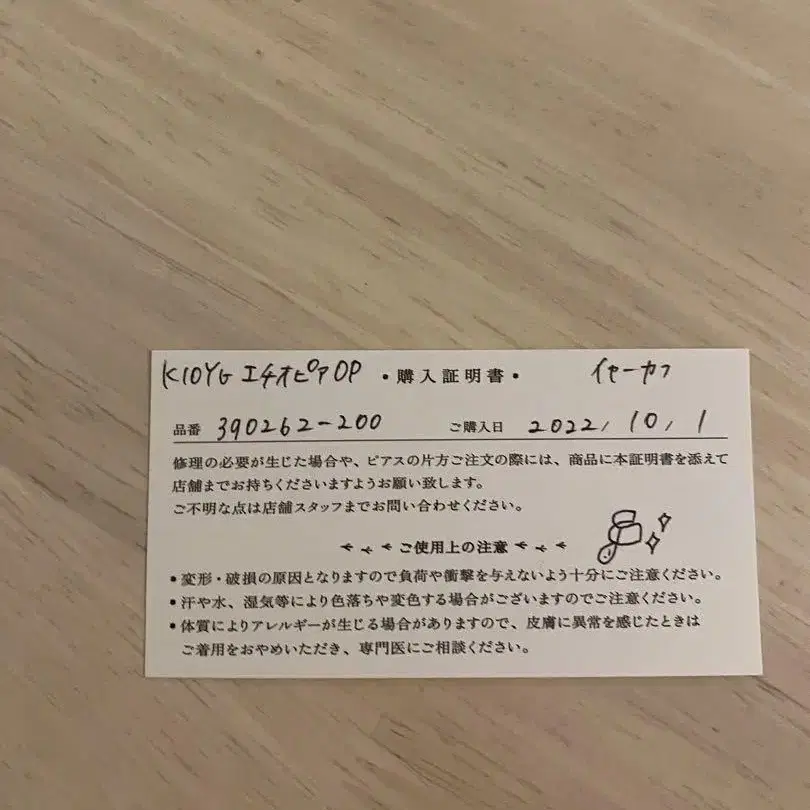 K10YG エチオピアOP ・購入証明書・ イヤーカフ
品番 390262-200 ご購入日 2022, 10, 1
修理の必要が生じた場合や、ピアスの片方ご注文の際には、商品に本証明書を添えて
店舗までお持ちくださいますようお願い致します。
ご不明な点は店舗スタッフまでお問い合わせください。
ご使用上の注意
・変形・破損の原因となりますので負荷や衝撃を与えないよう十分にご注意ください。
・汗や水、湿気等により色落ちや変色する場合がございますのでご注意ください。
・体質によりアレルギーが生じる場合がありますので、皮膚に異常を感じたときは
ご着用をおやめいただき、専門医にご相談ください。